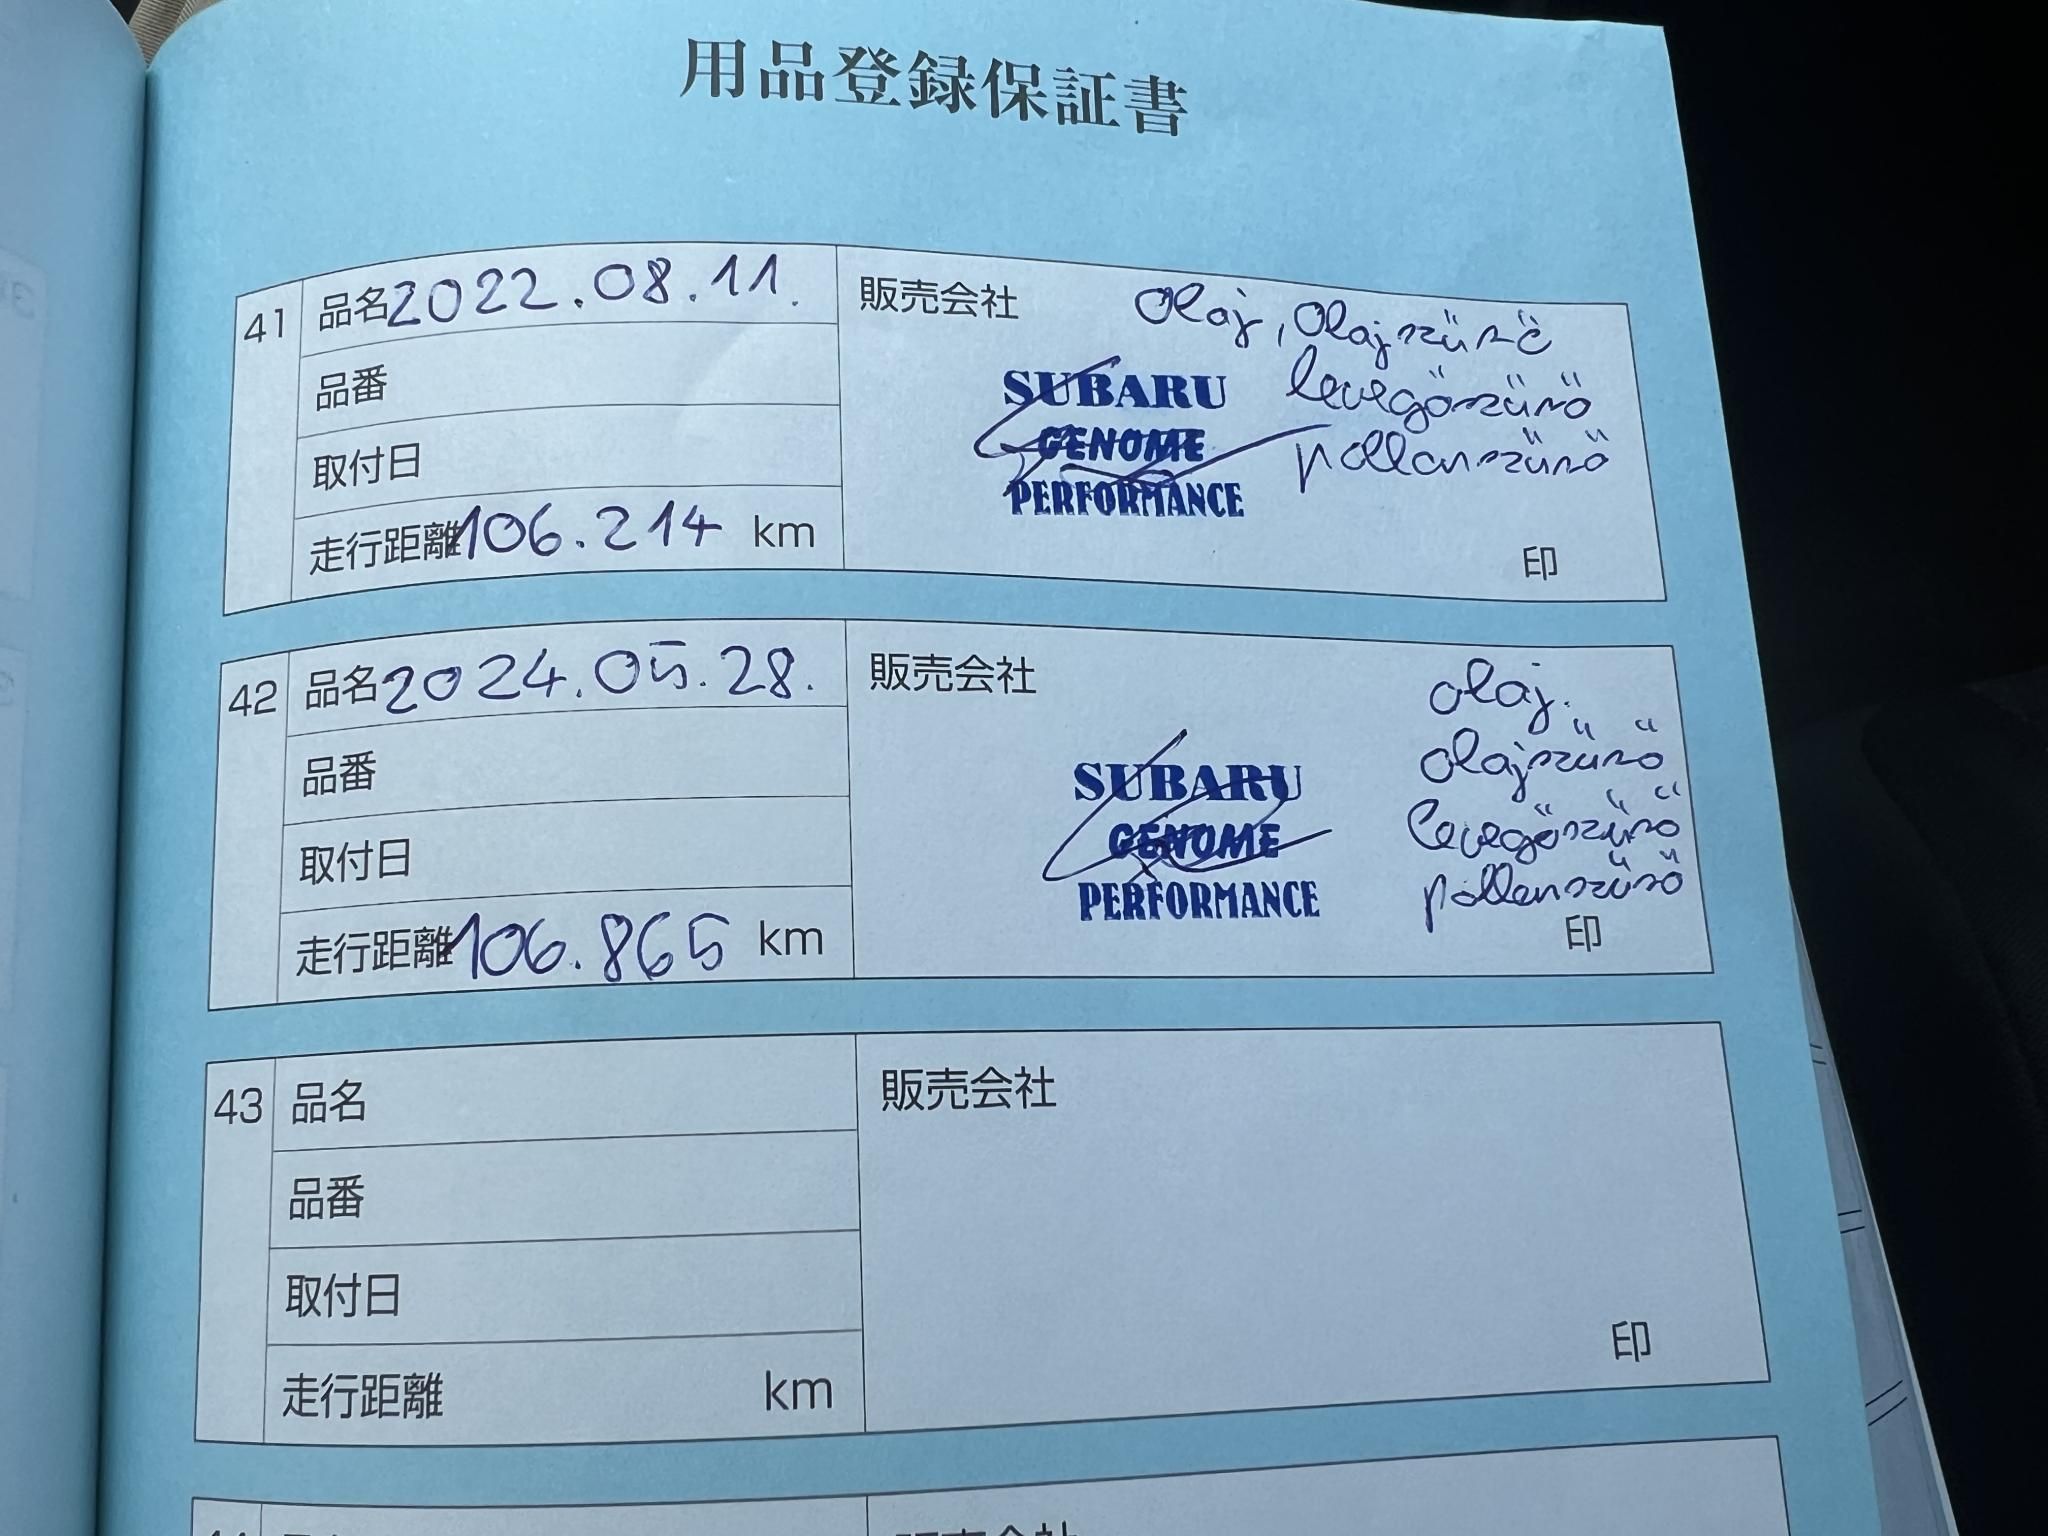 用品登録保証書
41
品名 2022.08.11.
品番
取付日
走行距離 106.214 km
販売会社
Olaj, Olajszűrő
levegőszűrő
pollenszűrő
SUBARU
GENOME
PERFORMANCE
印
42
品名 2024.05.28.
品番
取付日
走行距離 106.865 km
販売会社
olaj.
olajszűrő
levegőszűrő
pollenszűrő
SUBARU
GENOME
PERFORMANCE
印
43
品名
品番
取付日
走行距離 km
販売会社
印
販売会社